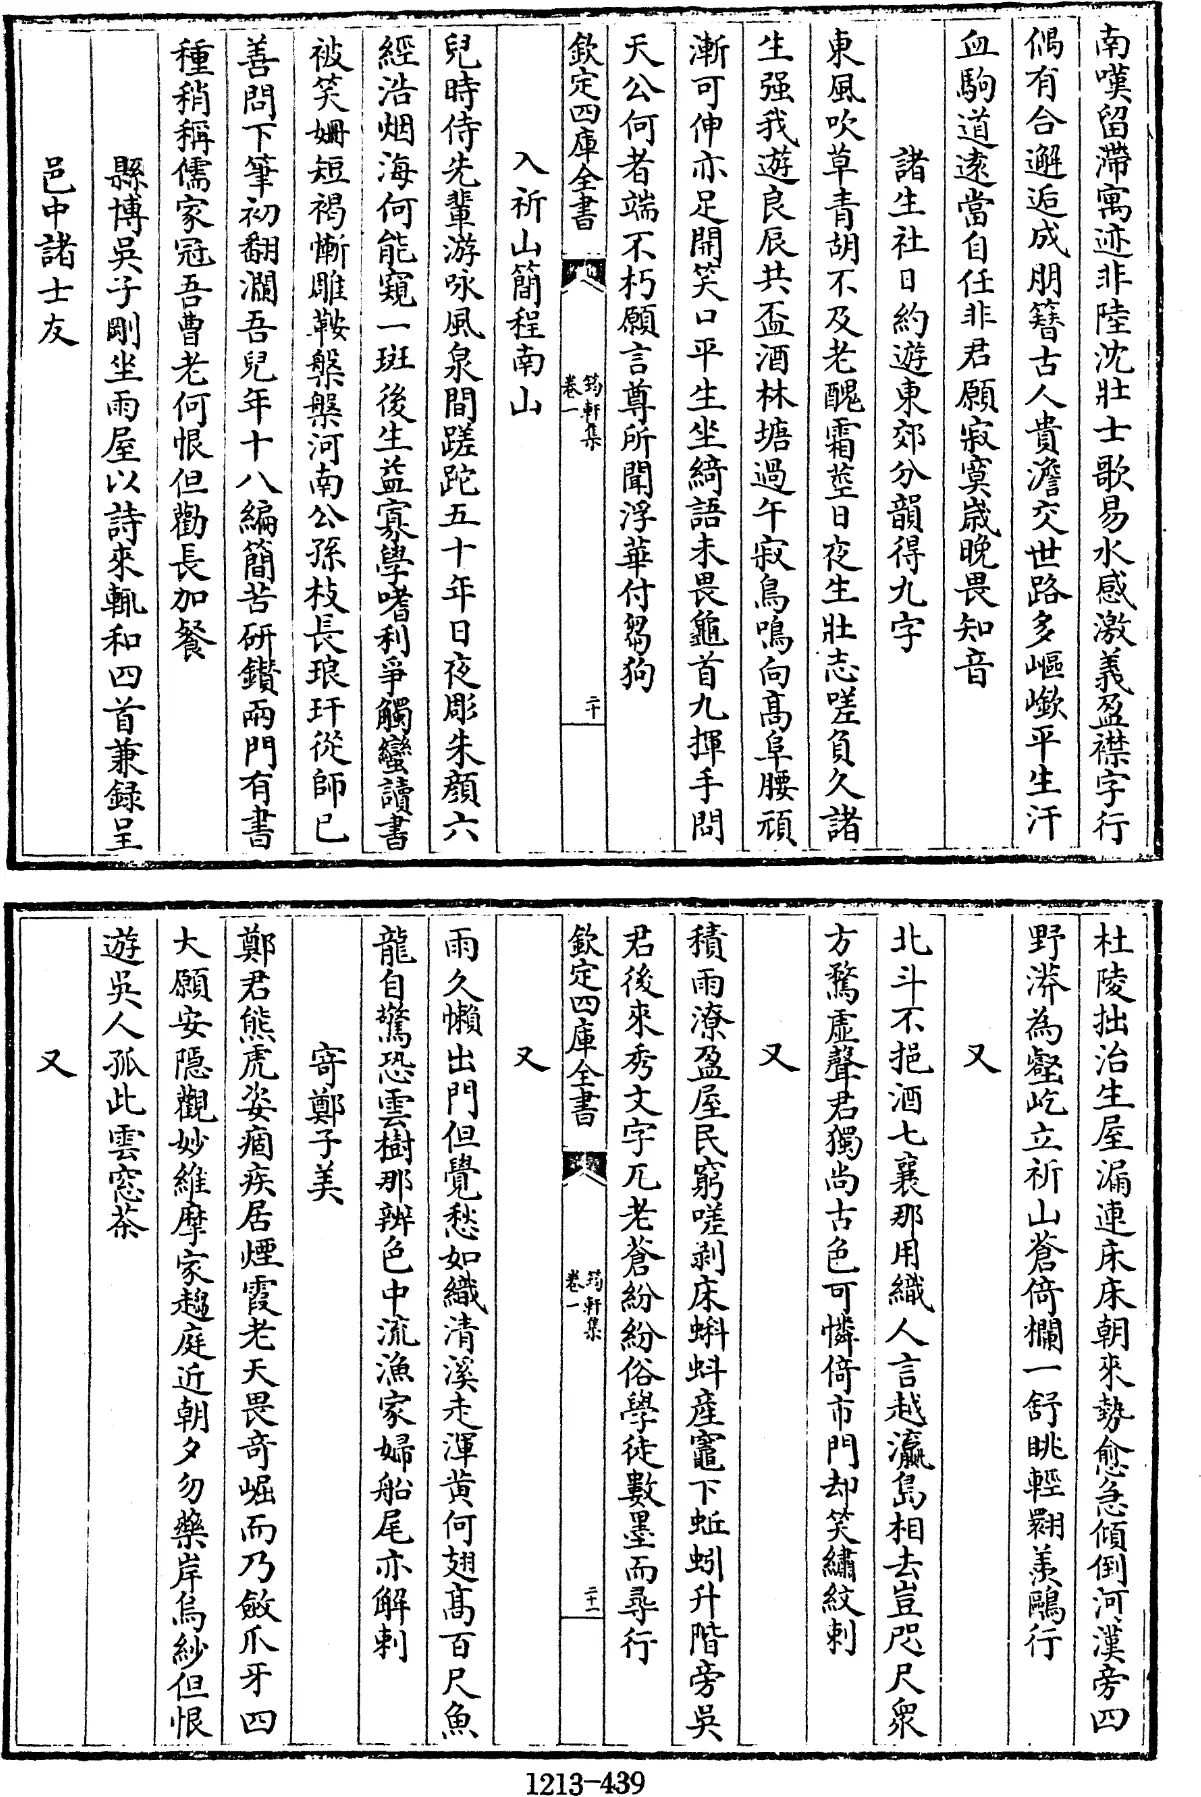 南嘆留滯寓迹非陸沈壯士歌易水感激義盈襟字行
鳴有合邂逅成朋簪古人貴澹交世路多嶇嶔平生汗
血駒道逺當自任非君願寂寞嵗晚畏知音
諸生社日約遊東郊分韻得九字
東風吹草青胡不及老醜霜莖日夜生壯志嗟負久諸
生强我遊良辰共盃酒林塘過午寂鳥鳴向髙阜腰頑
漸可伸亦足開笑口平生坐綺語未畏龜首九揮手問
天公何者端不朽願言尊所聞浮華付芻狗
欽定四庫全書
筠軒集
卷一
二十
入祈山簡程南山
兒時侍先輩游咏風泉間蹉跎五十年日夜彫朱顔六
經浩烟海何能窺一斑後生益寡學嗜利爭觸蠻讀書
被笑姍短褐慚雕鞍槃槃河南公孫枝長琅玕從師已
善問下筆初翻瀾吾兒年十八編簡苦研鑚兩門有書
種稍稱儒家冠吾曹老何恨但勸長加餐
縣博吳子剛坐雨屋以詩來輒和四首兼録呈
邑中諸士友
杜陵拙治生屋漏連床床朝來勢愈急傾倒河漢旁四
野漭為壑屹立祈山蒼倚欄一舒眺輕翾羨鷗行
又
北斗不挹酒七襄那用織人言越瀛島相去豈咫尺衆
方騖虚聲君獨尚古色可憐倚市門却笑繡紋刺
又
積雨潦盈屋民窮嗟剥床蝌蚪産竈下蚯蚓升階旁吳
君後來秀文字兀老蒼紛紛俗學徒數墨而尋行
欽定四庫全書
筠軒集
卷一
二十一
又
雨久懶出門但覺愁如織清溪走渾黄何翅髙百尺魚
龍自驚恐雲樹那辨色中流漁家婦船尾亦解刺
寄鄭子美
鄭君熊虎姿痼疾居煙霞老天畏奇崛而乃斂爪牙四
大願安隠觀妙維摩家趨庭近朝夕勿藥岸烏紗但恨
遊吳人孤此雲窓茶
又
1213-439